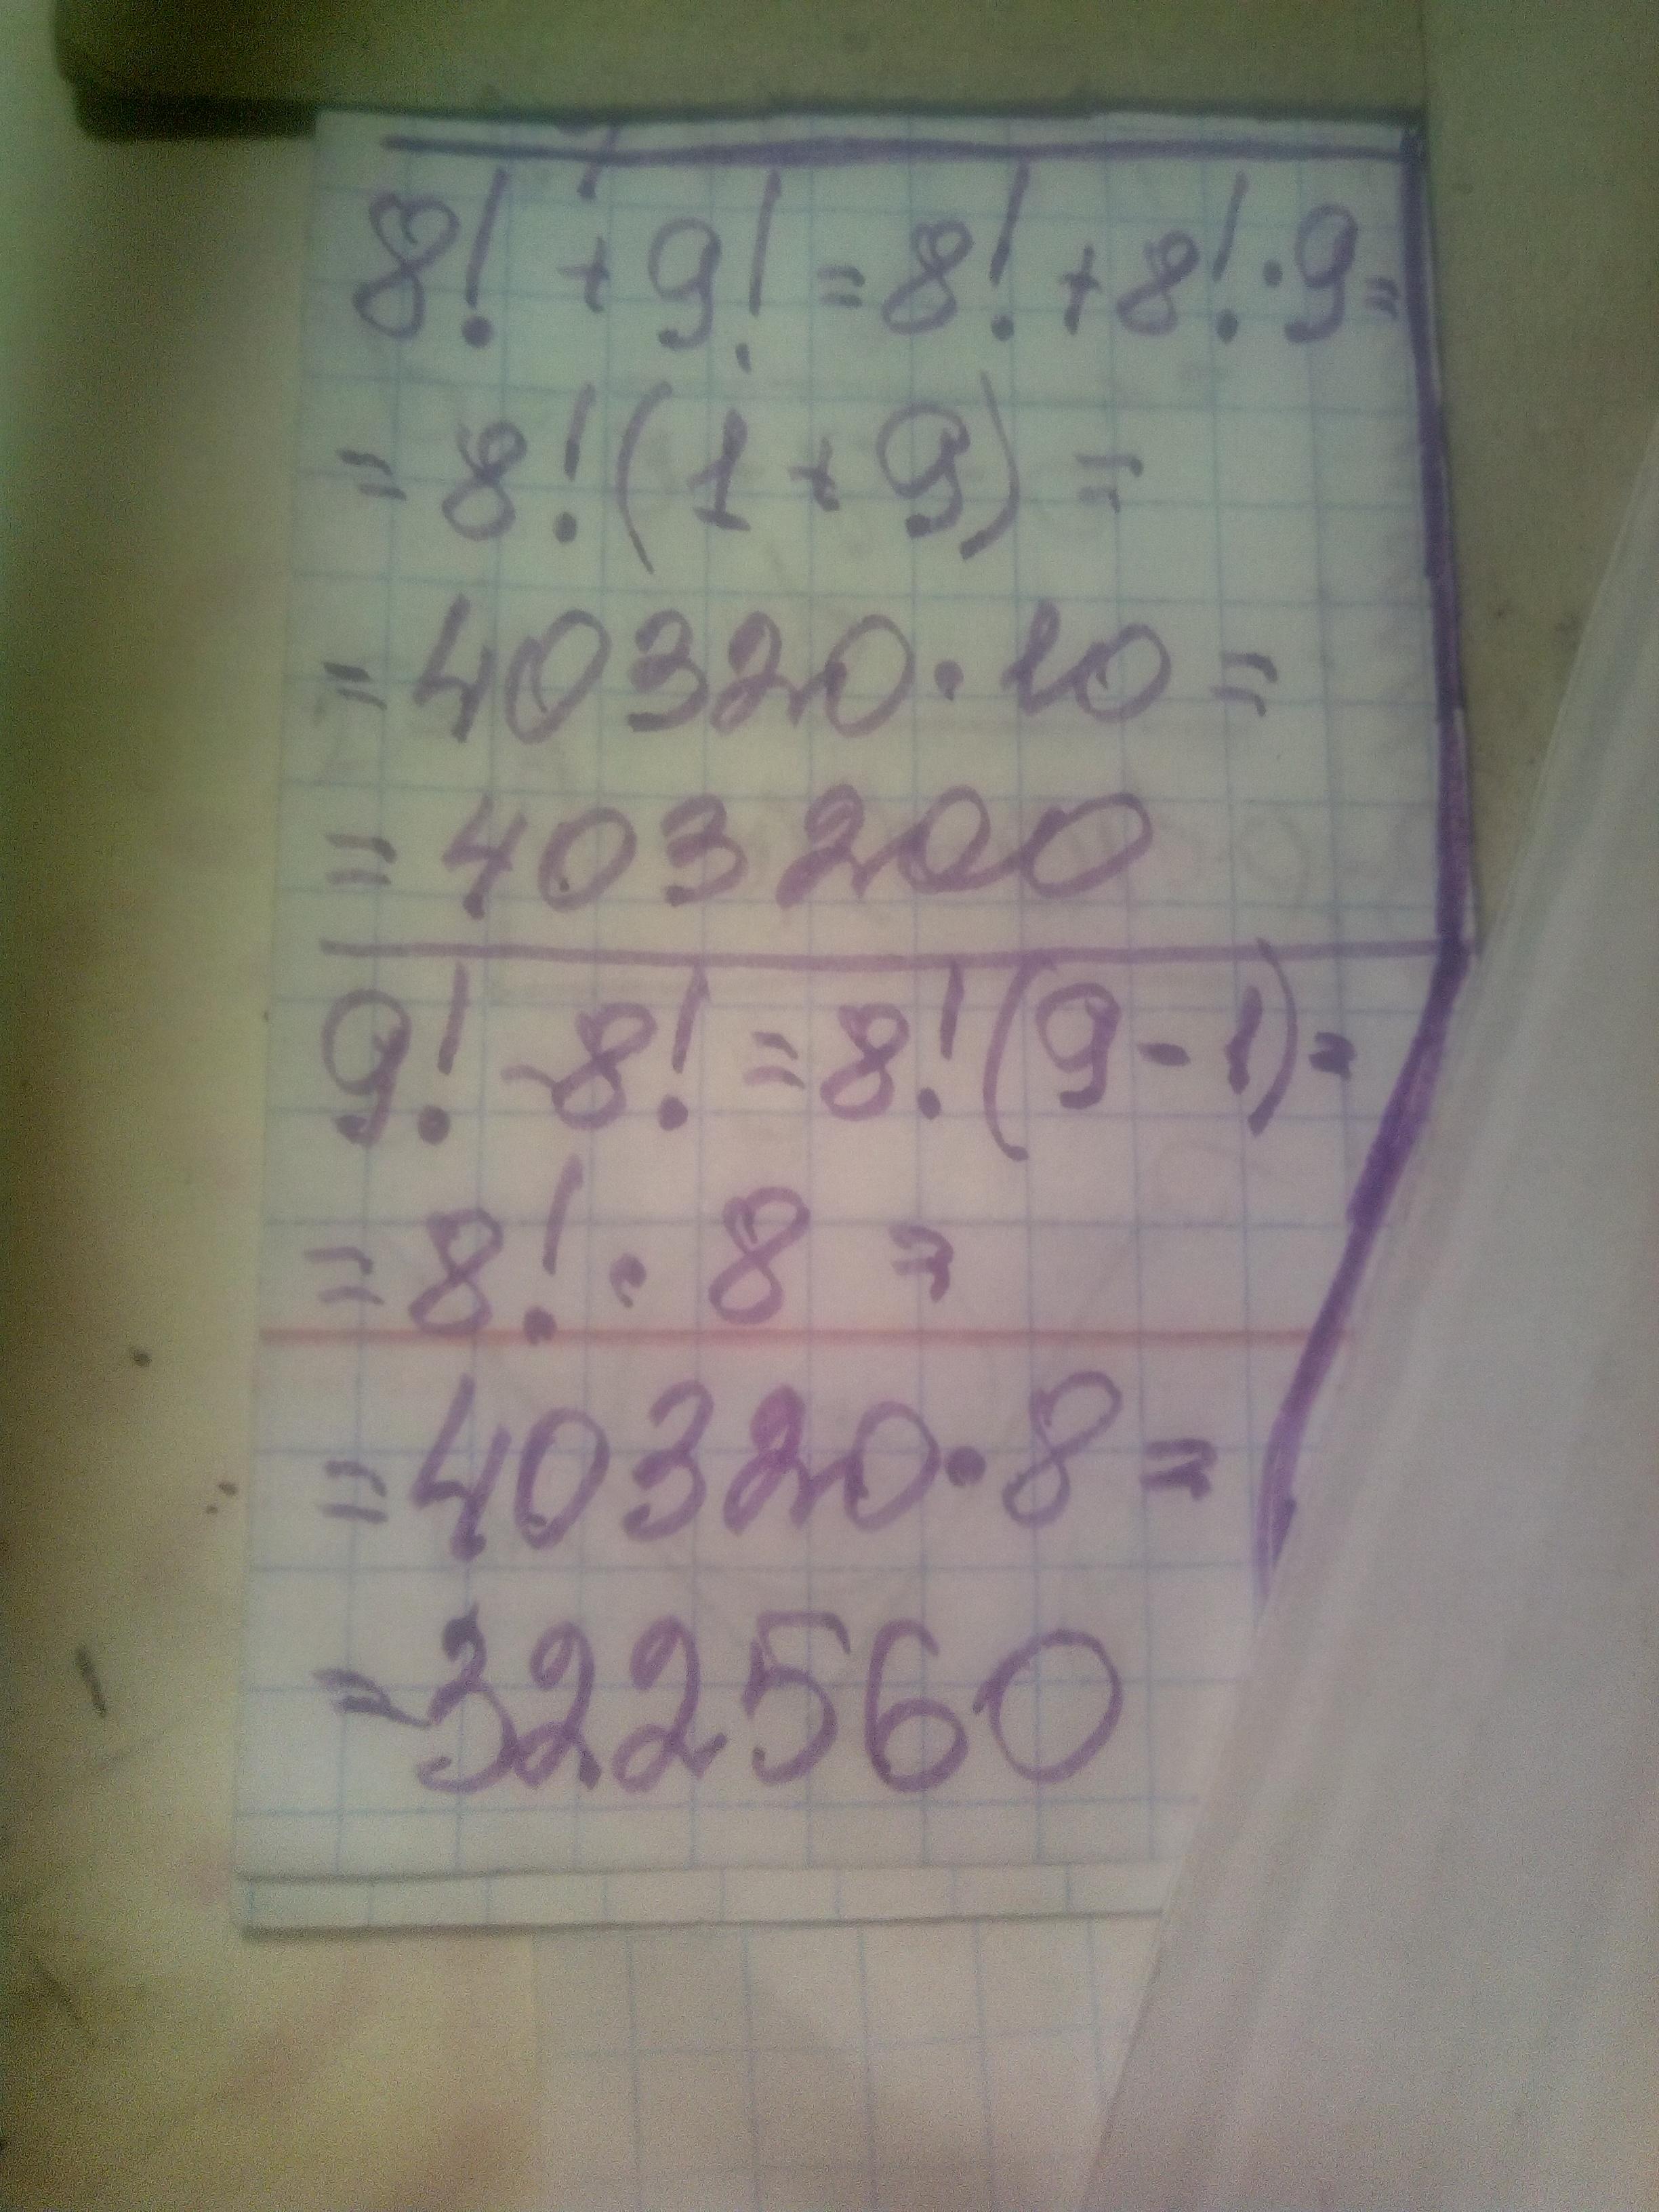 8! + 9! = 8! + 8! · 9 =
= 8! (1 + 9) =
= 40320 · 10 =
= 403200
9! - 8! = 8! (9 - 1) =
= 8! · 8 =
= 40320 · 8 =
= 322560